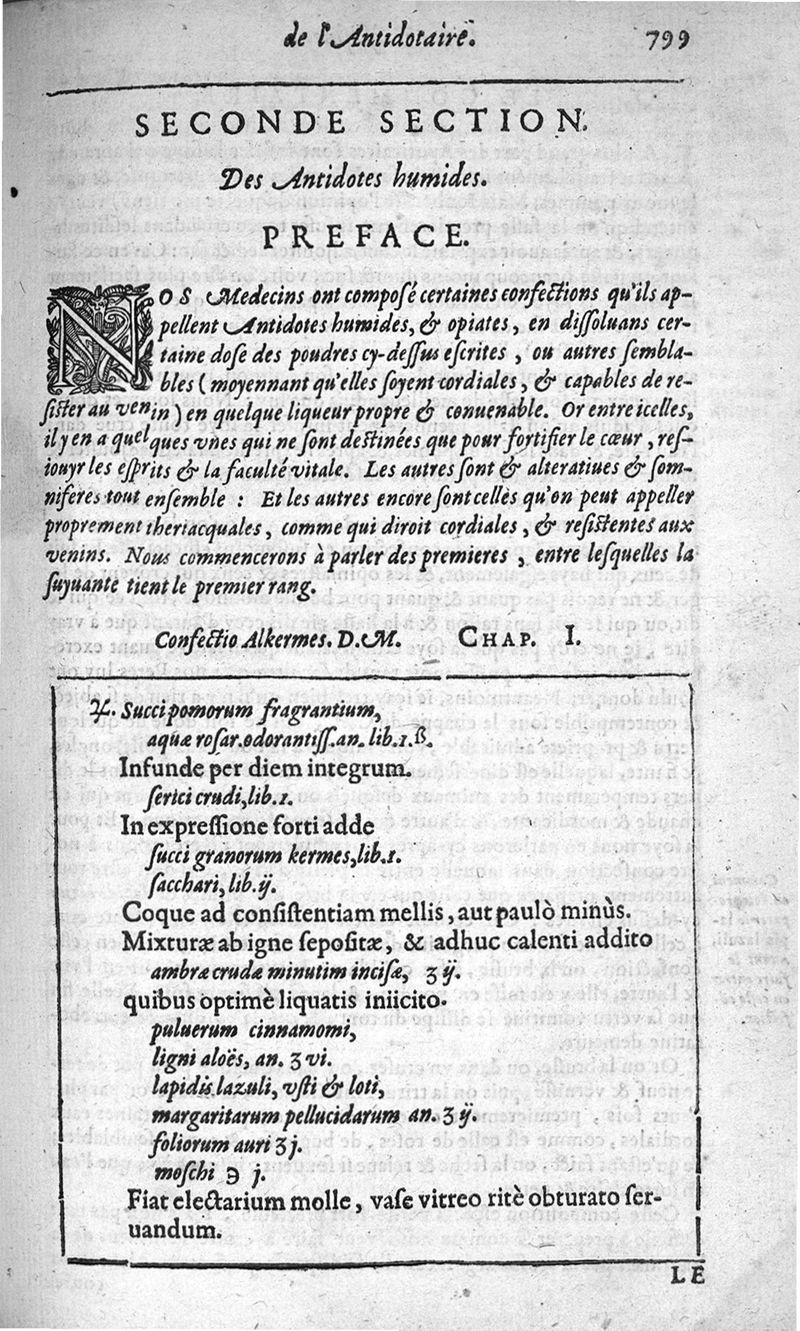 de l'Antidotaire. 799
SECONDE SECTION.
Des Antidotes humides.
PREFACE.
NOS Medecins ont composé certaines confections qu'ils ap-
pellent Antidotes humides, & opiates, en dissoluans cer-
taine dose des poudres cy-dessus escrites, ou autres sembla-
bles (moyennant qu'elles soyent cordiales, & capables de re-
sister au venin) en quelque liqueur propre & conuenable. Or entre icelles,
il y en a quelques vnes qui ne sont destinées que pour fortifier le cœur, res-
iouyr les esprits & la faculté vitale. Les autres sont & alteratiues & som-
niferes tout ensemble : Et les autres encore sont celles qu'on peut appeller
proprement theriacquales, comme qui diroit cordiales, & resistentes aux
venins. Nous commencerons à parler des premieres, entre lesquelles la
suyuante tient le premier rang.
Confectio Alkermes. D. M. CHAP. I.
♃. Succi pomorum fragrantium,
aquæ rosar. odorantiss. an. lib. 1. ß.
Infunde per diem integrum.
serici crudi, lib. 1.
In expressione forti adde
succi granorum kermes, lib. 1.
sacchari, lib. ij.
Coque ad consistentiam mellis, aut paulò minùs.
Mixturæ ab igne sepositæ, & adhuc calenti addito
ambræ crudæ minutim incisæ, ʒ ij.
quibus optimè liquatis iniicito.
puluerum cinnamomi,
ligni aloës, an. ʒ vi.
lapidis lazuli, vsti & loti,
margaritarum pellucidarum an. ʒ ij.
foliorum auri ʒ j.
moschi ℈ j.
Fiat electarium molle, vase vitreo ritè obturato ser-
uandum.
LE